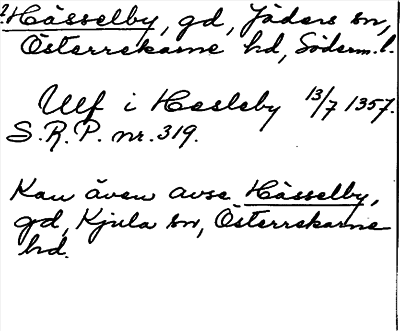 ?Hässelby, gd, Jäders sn,
Österrekarne hd, Söderm.l.
Ulf i Hesleby 13/7 1357.
S.R.P. nr. 319.
Kan även avse Hässelby,
gd, Kjula sn, Österrekarne
hd.